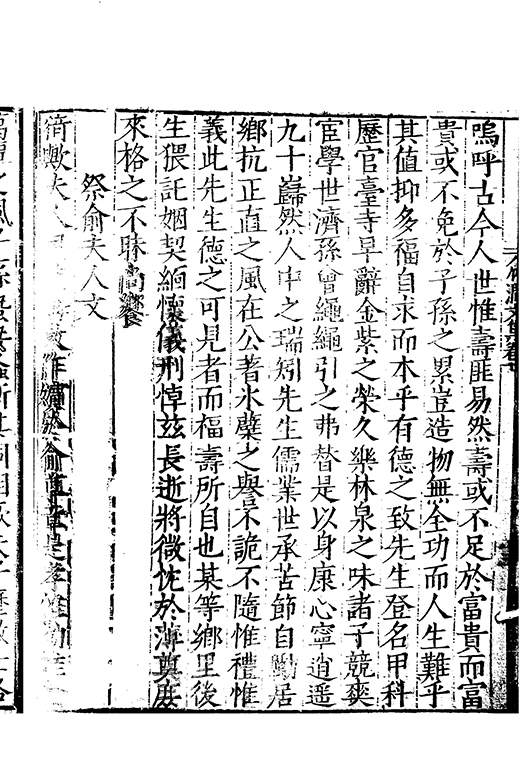 嗚呼古今人世惟壽匪易然壽或不足於富貴而富
貴或不免於子孫之累豈造物無全功而人生難乎
其值抑多福自求而本乎有德之致先生登名甲科
歷官臺寺早辭金紫之榮久樂林泉之味諸子競爽
宦學世濟孫曾繩繩引之弗替是以身康心寧逍遥
九十巋然人中之瑞矧先生儒業世承苦節自勵居
鄉抗正直之風在公著氷蘗之譽不詭不隨惟禮惟
義此先生德之可見者而福壽所自也某等鄉里後
生猥託姻契緬懷儀刑悼兹長逝將微忱於薄奠庶
來格之不昧尚饗
祭俞夫人文